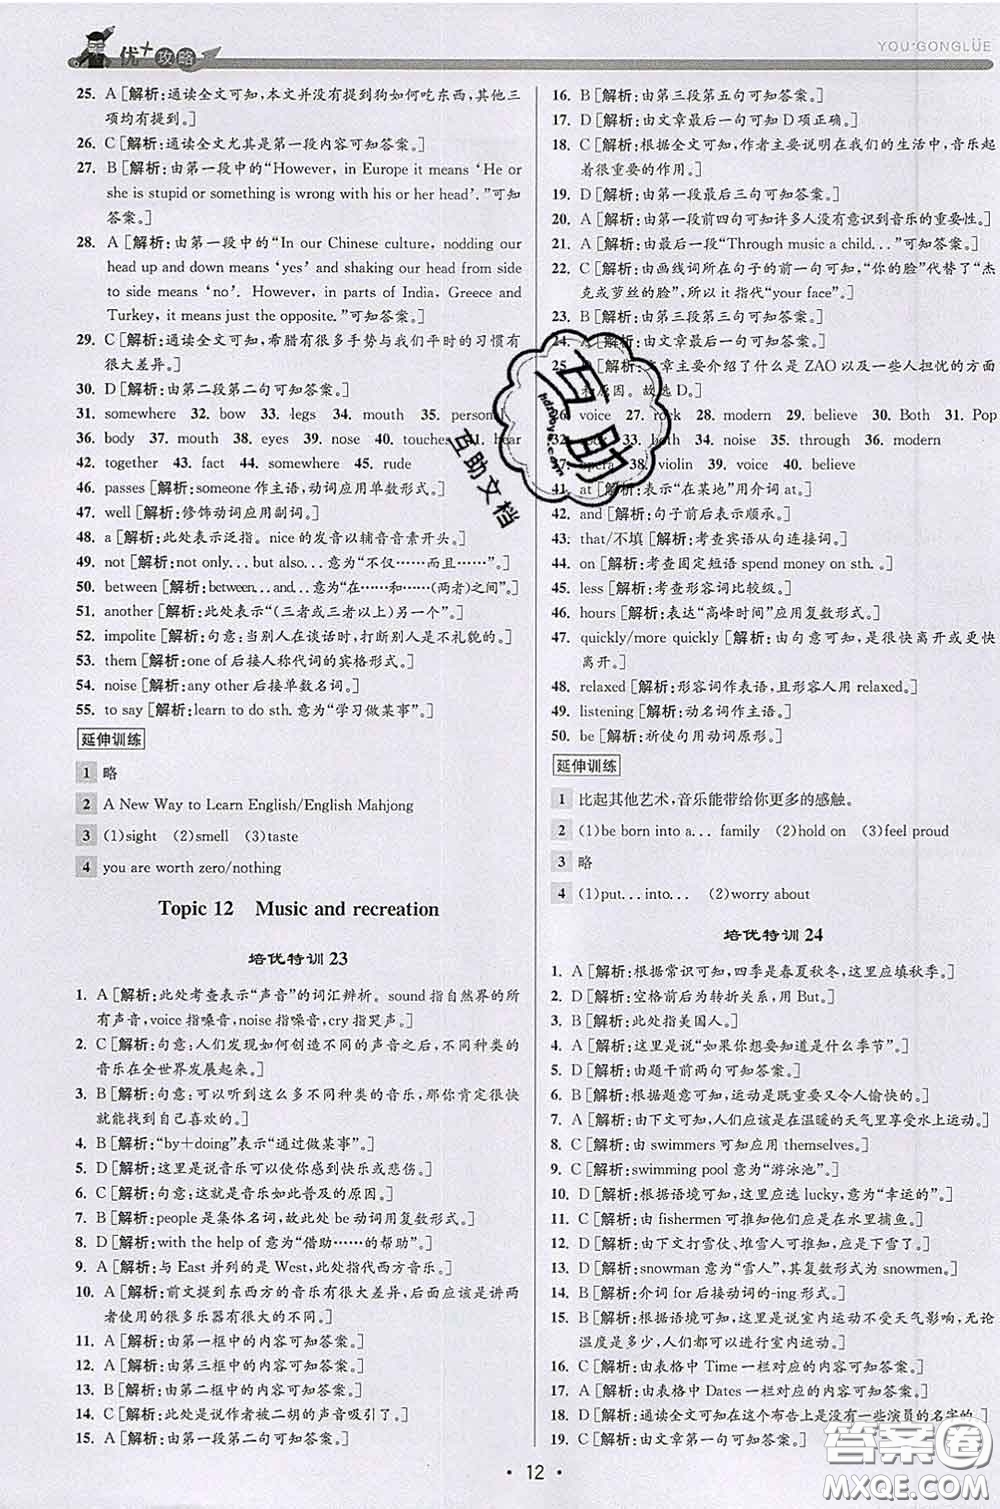 优+攻略
YOU+GONGLÜE
25. A [解析:通读全文可知,本文并没有提到狗如何吃东西,其他三
项均有提到。]
26. C [解析:通读全文尤其是第一段内容可知答案。]
27. B [解析:由第一段中的“However, in Europe it means ‘He or
she is stupid or something is wrong with his or her head’.”可知
答案。]
28. A [解析:由第一段中的“In our Chinese culture, nodding our
head up and down means ‘yes’ and shaking our head from side
to side means ‘no’. However, in parts of India, Greece and
Turkey, it means just the opposite.”可知答案。]
29. C [解析:通读全文可知,希腊有很多手势与我们平时的习惯有
很大差异。]
30. D [解析:由第二段第二句可知答案。]
31. somewhere 32. bow 33. legs 34. mouth 35. person
36. body 37. mouth 38. eyes 39. nose 40. touches 41. hear
42. together 43. fact 44. somewhere 45. rude
46. passes [解析:someone 作主语,动词应用单数形式。]
47. well [解析:修饰动词应用副词。]
48. a [解析:此处表示泛指。nice 的发音以辅音音素开头。]
49. not [解析:not only... but also... 意为“不仅……而且……”。]
50. between [解析:between...and... 意为“在……和……(两者)之间”。]
51. another [解析:此处表示“(三者或三者以上)另一个”。]
52. impolite [解析:句意:当别人在谈话时,打断别人是不礼貌的。]
53. them [解析:one of 后接人称代词的宾格形式。]
54. noise [解析:any other 后接单数名词。]
55. to say [解析:learn to do sth. 意为“学习做某事”。]
延伸训练
1 略
2 A New Way to Learn English/English Mahjong
3 (1)sight (2)smell (3)taste
4 you are worth zero/nothing
Topic 12 Music and recreation
培优特训 23
1. A [解析:此处考查表示“声音”的词汇辨析。sound 指自然界的所
有声音,voice 指嗓音,noise 指噪音,cry 指哭声。]
2. C [解析:句意:人们发现如何创造不同的声音之后,不同种类的
音乐在全世界发展起来。]
3. B [解析:句意:可以听到这么多不同种类的音乐,人们总是很快
就能找到自己喜欢的。]
4. B [解析:“by+doing”表示“通过做某事”。]
5. D [解析:这里是说音乐可以让人们感到快乐或悲伤。]
6. C [解析:句意:这就是音乐如此普及的原因。]
7. B [解析:people 是集体名词,故此处 be 动词用复数形式。]
8. D [解析:with the help of 意为“借助……的帮助”。]
9. A [解析:与 East 并列的是 West,此处指代西方音乐。]
10. A [解析:前文提到东西方的音乐有很大差异,后面应该是讲两
者使用的很多乐器有很大的不同。]
11. A [解析:由第一框中的内容可知答案。]
12. A [解析:由第三框中的内容可知答案。]
13. B [解析:由第二框中的内容可知答案。]
14. C [解析:此处是说作者被二胡的声音吸引了。]
15. A [解析:由第一段的第二句可知答案。]
16. B [解析:由第三段第五句可知答案。]
17. D [解析:由文章最后一句可知 D 项正确。]
18. C [解析:根据全文可知,作者主要说明在我们的生活中,音乐起
着很重要的作用。]
19. D [解析:由第一段最后三句可知答案。]
20. A [解析:由第一段前四句可知许多人没有意识到音乐的重要性。]
21. A [解析:由第一段最后一段“Through music a child...”可知答案。]
22. C [解析:由画线词所在句子的前一句可知,“你的脸”代替了“杰
克或萝丝的脸”,所以 it 指代“your face”。]
23. B [解析:由第三段第三句可知答案。]
24. A [解析:由文章最后一句可知答案。]
25. D [解析:文章主要介绍了什么是 ZAO 以及一些人担忧的方面
和原因。故选 D。]
26. voice 27. rock 28. modern 29. believe 30. Both 31. Pop
32. 33. both 34. noise 35. through 36. modern
37. opera 38. violin 39. voice 40. believe
41. at [解析:表示“在某地”用介词 at。]
42. and [解析:句子前后表示顺承。]
43. that/不填 [解析:考查宾语从句连接词。]
44. on [解析:考查固定短语 spend money on sth.。]
45. less [解析:考查形容词比较级。]
46. hours [解析:表达“高峰时间”应用复数形式。]
47. quickly/more quickly [解析:由句意可知,是很快离开或更快
离开。]
48. relaxed [解析:形容词作表语,且形容人用 relaxed。]
49. listening [解析:动名词作主语。]
50. be [解析:祈使句用动词原形。]
延伸训练
1 比起其他艺术,音乐能带给你更多的感触。
2 (1)be born into a... family (2)hold on (3)feel proud
3 略
4 (1)put...into... (2)worry about
培优特训 24
1. A [解析:根据常识可知,四季是春夏秋冬,这里应填秋季。]
2. D [解析:空格前后为转折关系,用 But。]
3. B [解析:此处指美国人。]
4. A [解析:这里是说“如果你想要知道是什么季节”。]
5. D [解析:由题干前两句可知答案。]
6. B [解析:根据题意可知,运动是既重要又令人愉快的。]
7. A [解析:由下文可知,人们应该是在温暖的天气里享受水上运动。]
8. C [解析:由 swimmers 可知应用 themselves。]
9. C [解析:swimming pool 意为“游泳池”。]
10. D [解析:根据语境可知,这里应选 lucky,意为“幸运的”。]
11. C [解析:由 fishermen 可推知他们应是在水里捕鱼。]
12. D [解析:由下文打雪仗、堆雪人可知,应是下雪了。]
13. D [解析:snowman 意为“雪人”,其复数形式为 snowmen。]
14. B [解析:介词 for 后接动词的-ing 形式。]
15. B [解析:根据语境可知,这里是说室内运动不受天气影响,无论
温度是多少,人们都可以进行室内运动。]
16. C [解析:由表格中 Time 一栏对应的内容可知答案。]
17. A [解析:由表格中 Dates 一栏对应的内容可知答案。]
18. D [解析:通读全文可知在这个布告上是没有一些演员的名字的。]
19. C [解析:由文章第一句可知答案。]
· 12 ·
互助
hdzuoye.com
互助文档
答案圈
MXQE.COM